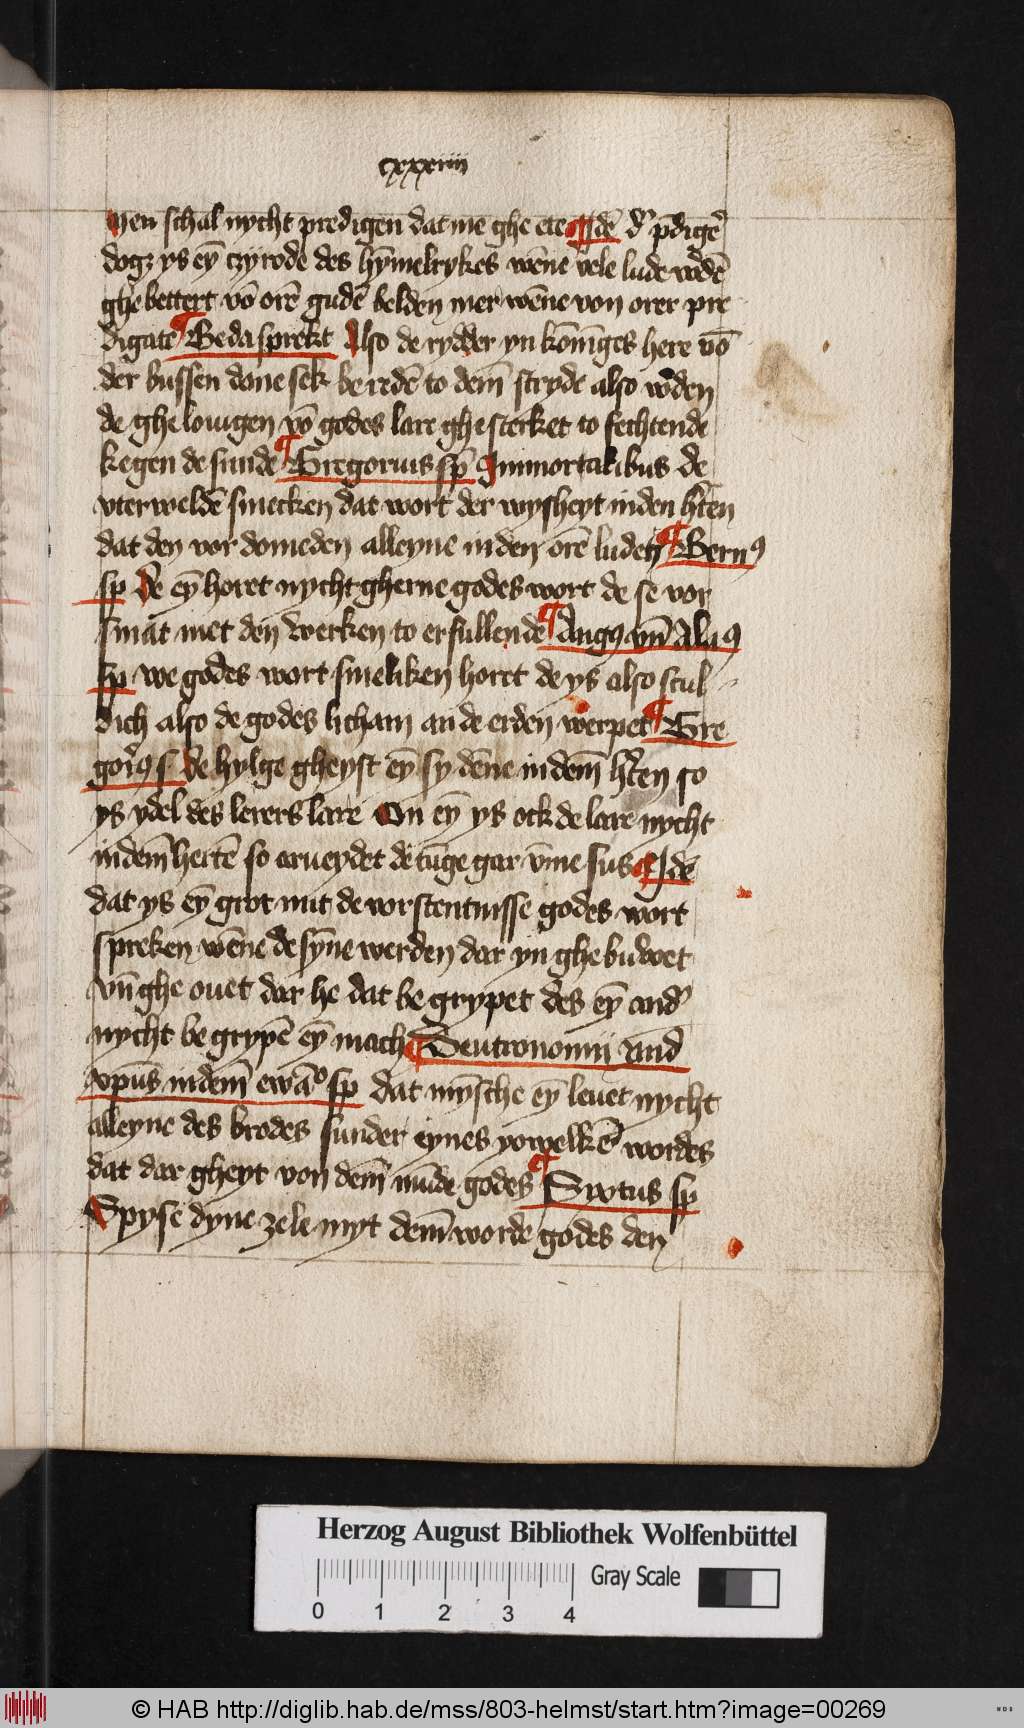 cxxxiiii
Men schal nycht predigen dat me ghe ete ¶ Jdē dͬ p̄digē
dogz ys eȳ czyrode des hȳmelrykes wēne vele lude wᵉdē
ghe bettert vō orē gudē belden mer wēne von orer pre
digate ¶ Beda sprekt Also de rydder yn kōniges here vō
der bussen done sek be redē to dem̄ stryde also wᵒden
de ghe louigen vō godes lare ghe sterket to fechtende
kegen de sunde ¶ Gregorius sp̄ Jnmortalibus de
vterweldē smecken dat wort der wysheyt in den hᵉten
dat den vor domeden alleyne in den orē ludet ¶ Bernꝰ
sp De eȳ horet nycht gherne godes wort de se vor
smat met den werken to erfullende ¶ Augꝰ vn̄ Alaꝰ
sp we godes wort smeliken horet de ys also scul
dich also de godes licham an de erden werpet ¶ Gre
gorꝰ s De hylge gheyst eȳ sy dēne in dem̄ hᵉten so
ys ydel des lerers lare On eȳ ys ock de lare nycht
in dem̄ hertē so arueydet de tūge gar v̄me sus ¶ Jdē
dat ys eȳ grot mit de vorstentnisse godes wort
spreken wēne de sȳne werden dar yn ghe buwet
vn̄ ghe ouet dar he dat be grypet des eȳ andͬ
nycht be grypē eȳ mach ¶ Deutronomij vnd
xpūs in dem̄ ewāᵒ sp dat mȳsche eȳ leuet nycht
alleyne des brodes sunder eynes yowelkē wordes
dat dar gheyt von dem̄ mūde godes ¶ Sixtus sp
Spyse dyne zele myt dem̄ worde godes den
Herzog August Bibliothek Wolfenbüttel
Gray Scale
0 1 2 3 4
© HAB http://diglib.hab.de/mss/803-helmst/start.htm?image=00269